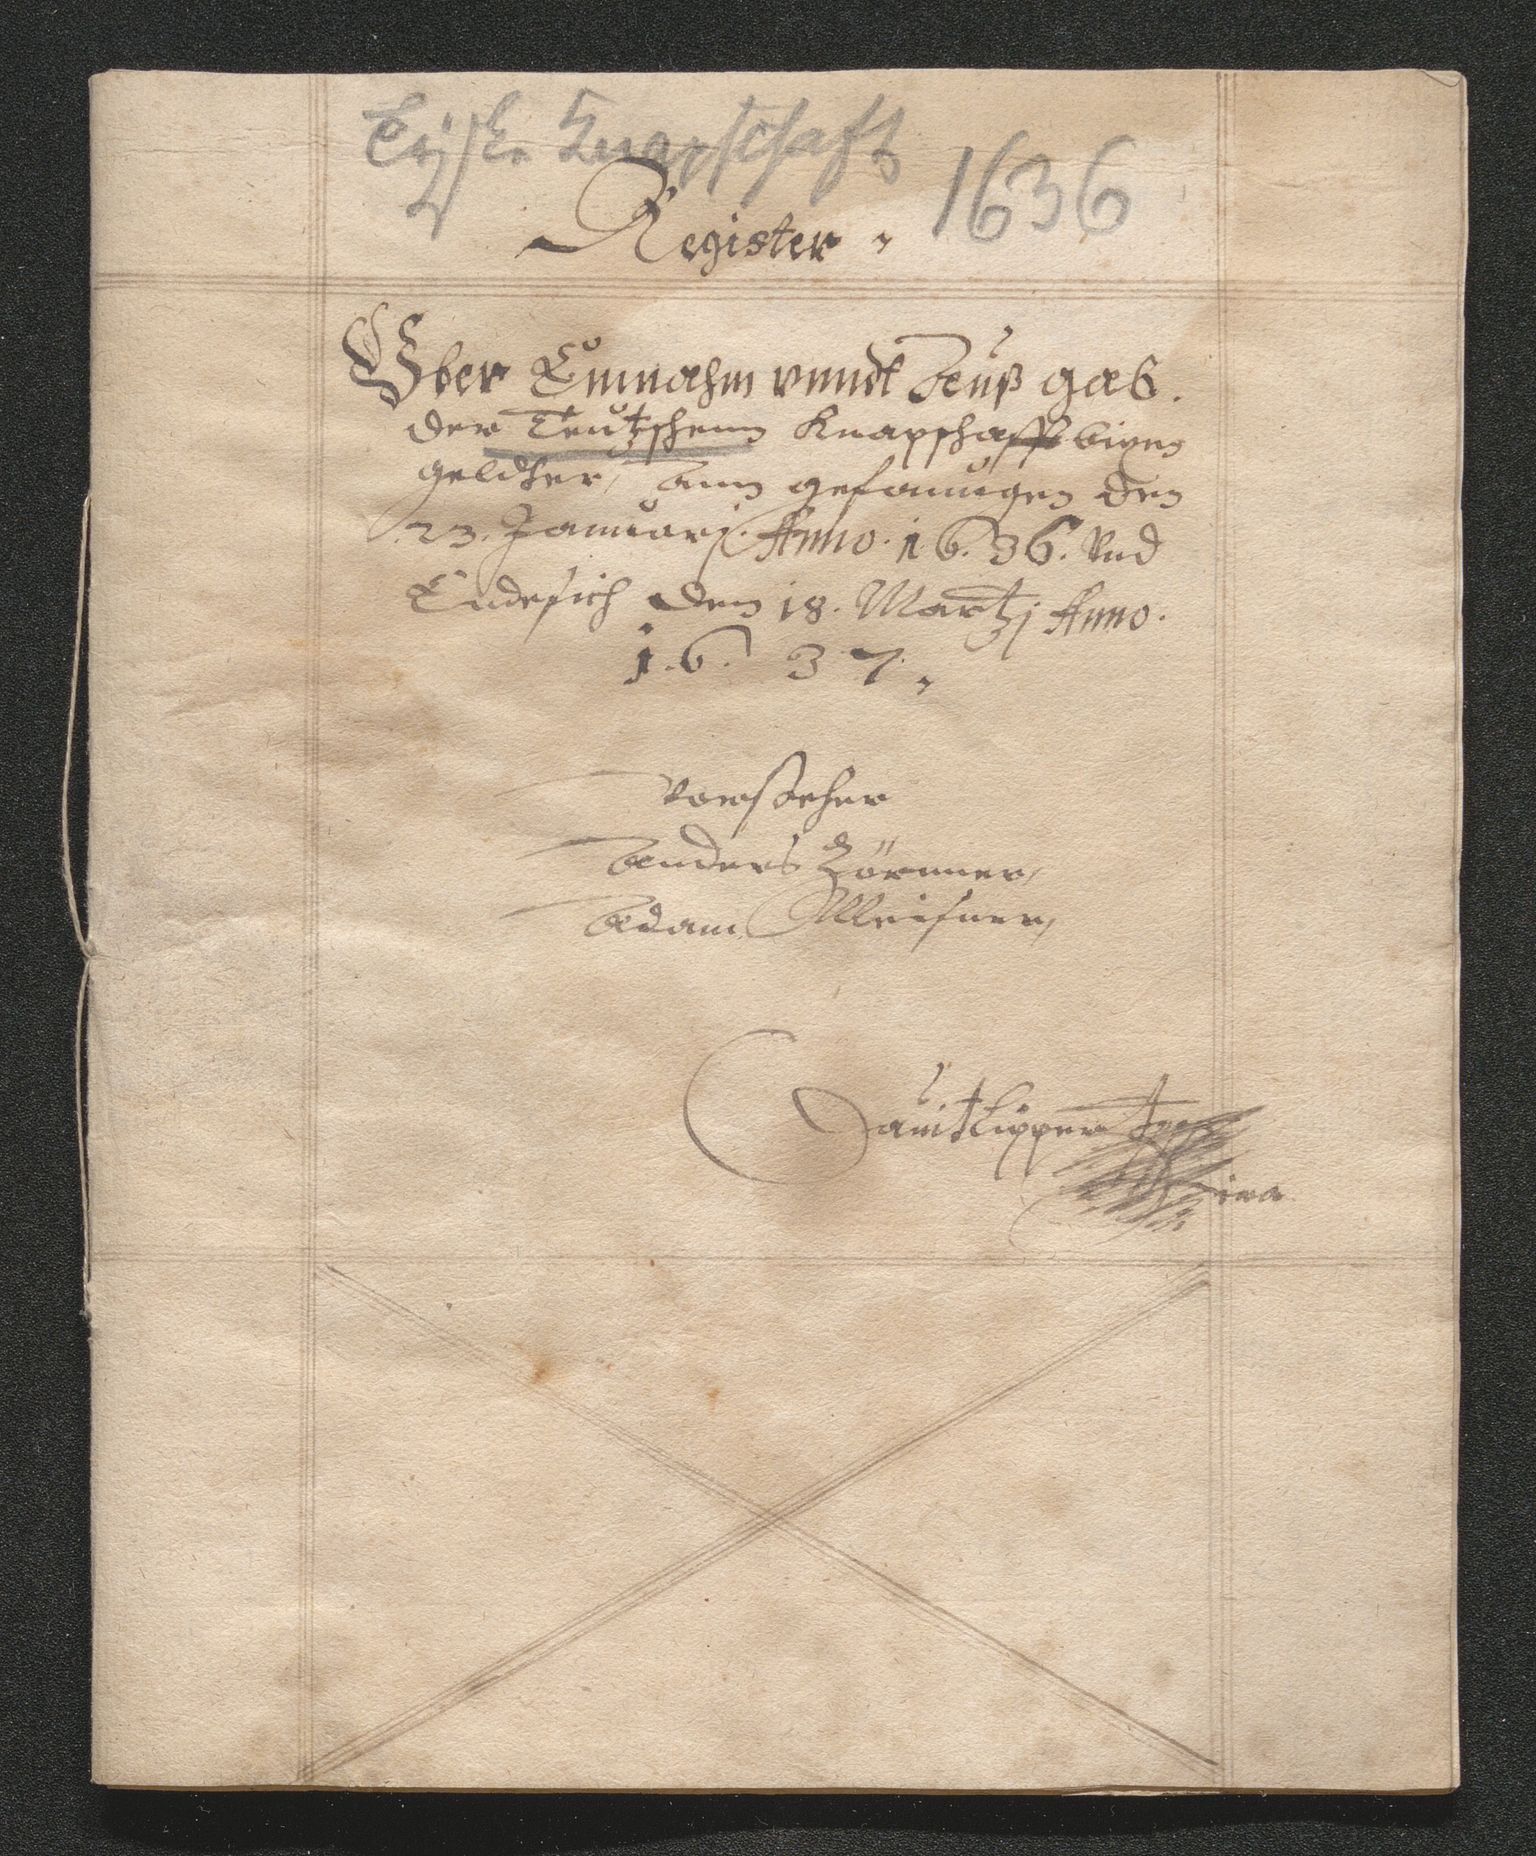 Tyske Knapschaft 1636
Register
Über Einnahm vnndt Auß gab.
der Teutzschenn Knapschafft bixen
geldher, Ann gefanngen den
23. Januarj. Anno. 16.36. Vnd
Endesich den 18. Martzj Anno.
1.6. 37.
Vorsteher
Anders Zörnner,
Adam Meisner,